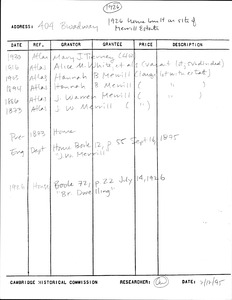 1926
ADDRESS: 404 Broadway 1926 home built on site of
Merrill Estate
DATE REF. GRANTOR GRANTEE PRICE DESCRIPTION
1930 Atlas Mary J. Tierney
1916 Atlas Alice M. White et al (vacant lot, undivided)
1903 Atlas Hannah B Merrill (large lot w/ estate)
1894 Atlas Hannah B Merrill "
1886 Atlas J. Warren Merrill ( " )
1873 Atlas J W Merrill ( " )
Pre- 1873 House
Eng Dept House Book 12, p 55 Sept 14, 1875
"J.W. Merrill"
1926 House Book 72, p 22 July 14, 1926
"Br. Dwelling"
CAMBRIDGE HISTORICAL COMMISSION RESEARCHER: DATE: 2/12/95